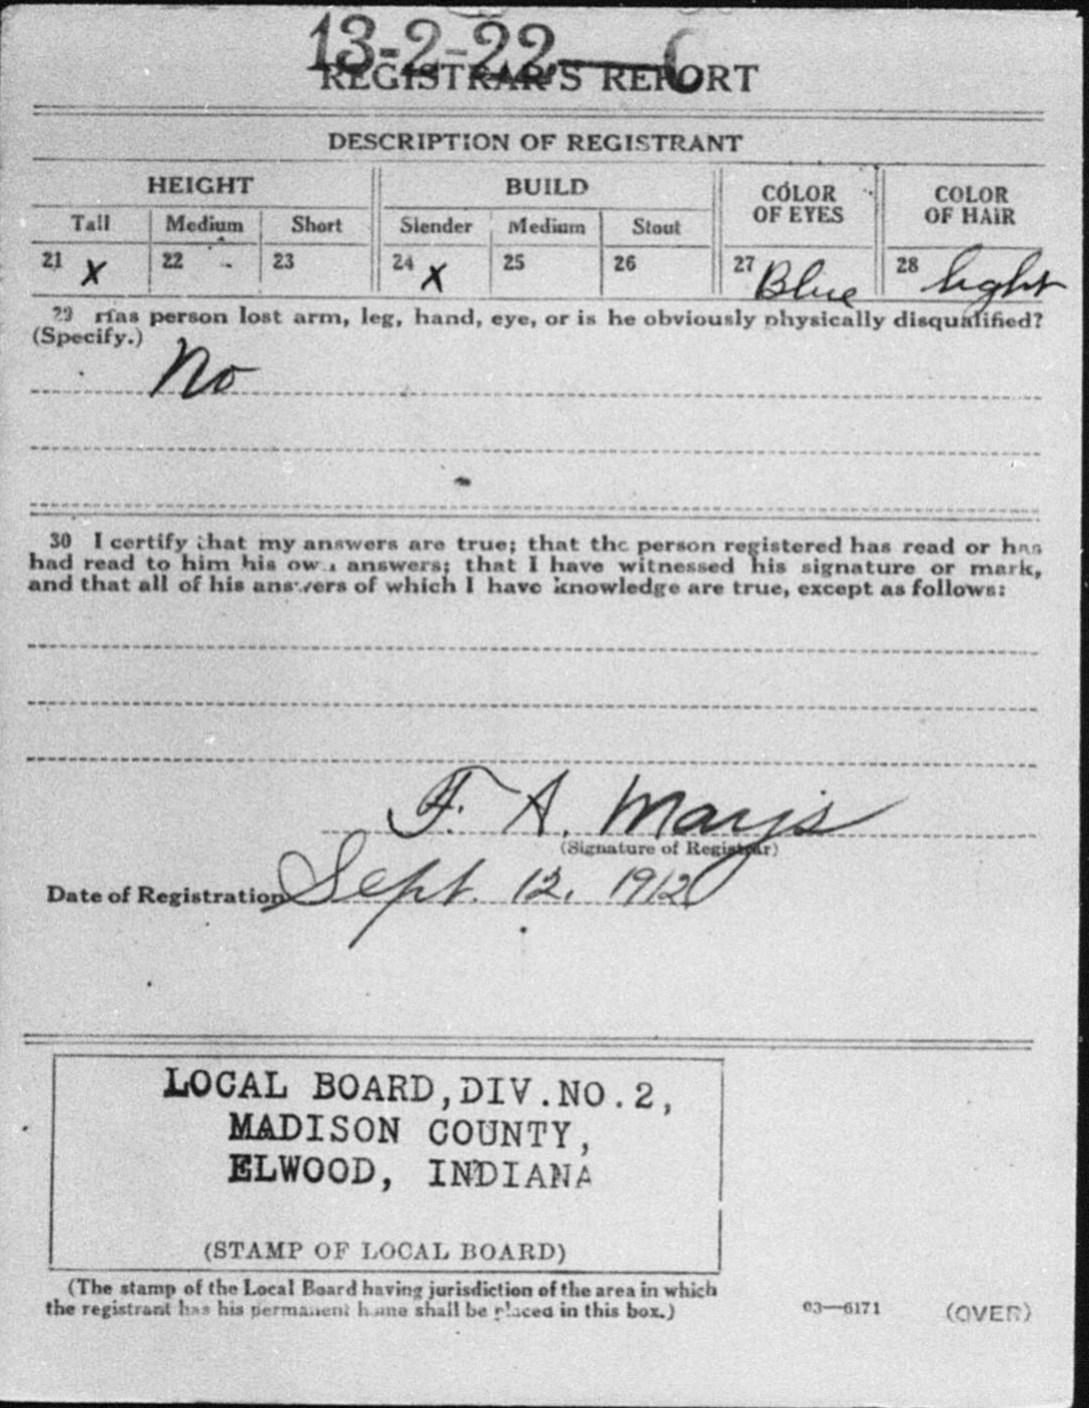 13-2-22 — C
REGISTRAR'S REPORT
DESCRIPTION OF REGISTRANT
HEIGHT BUILD COLOR OF EYES COLOR OF HAIR
Tall Medium Short Slender Medium Stout
21 X 22 - 23 24 X 25 26 27 Blue 28 light
29 Has person lost arm, leg, hand, eye, or is he obviously physically disqualified?
(Specify.)
No
30 I certify that my answers are true; that the person registered has read or has
had read to him his own answers; that I have witnessed his signature or mark,
and that all of his answers of which I have knowledge are true, except as follows:
F. A. Mays
(Signature of Registrar)
Date of Registration Sept. 12, 1912
LOCAL BOARD, DIV. NO. 2,
MADISON COUNTY,
ELWOOD, INDIANA
(STAMP OF LOCAL BOARD)
(The stamp of the Local Board having jurisdiction of the area in which
the registrant has his permanent home shall be placed in this box.)
03—6171 (OVER)